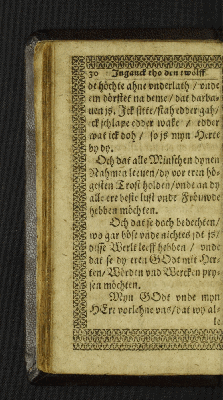 30 Inganck tho den twölff
de höchte ahne vnderlath / vnde
em dörstet na deme / dat darba-
uen js. Jck sitte / stah edder gah /
ick schlape edder wake / edder
wat ick doh / so js myn Herte
by dy.
Och dat alle Minschen dynen
Nahmen leueu / dy vor eren hö-
gesten Trost holden / vnde an dy
alle ere beste lust vnde Fröuwde
hebben möchten.
Och dat se doch bedechten /
wo gar böse vnde nichtes jdt js /
disse Werlt leeff hebben / vnde
dat se dy eren GOdt mit Her-
ten / Wörden vnd Wercken pry-
sen möchten.
Myn GOdt vnde myn
HErr vorlehne vns / dat wy al-
le